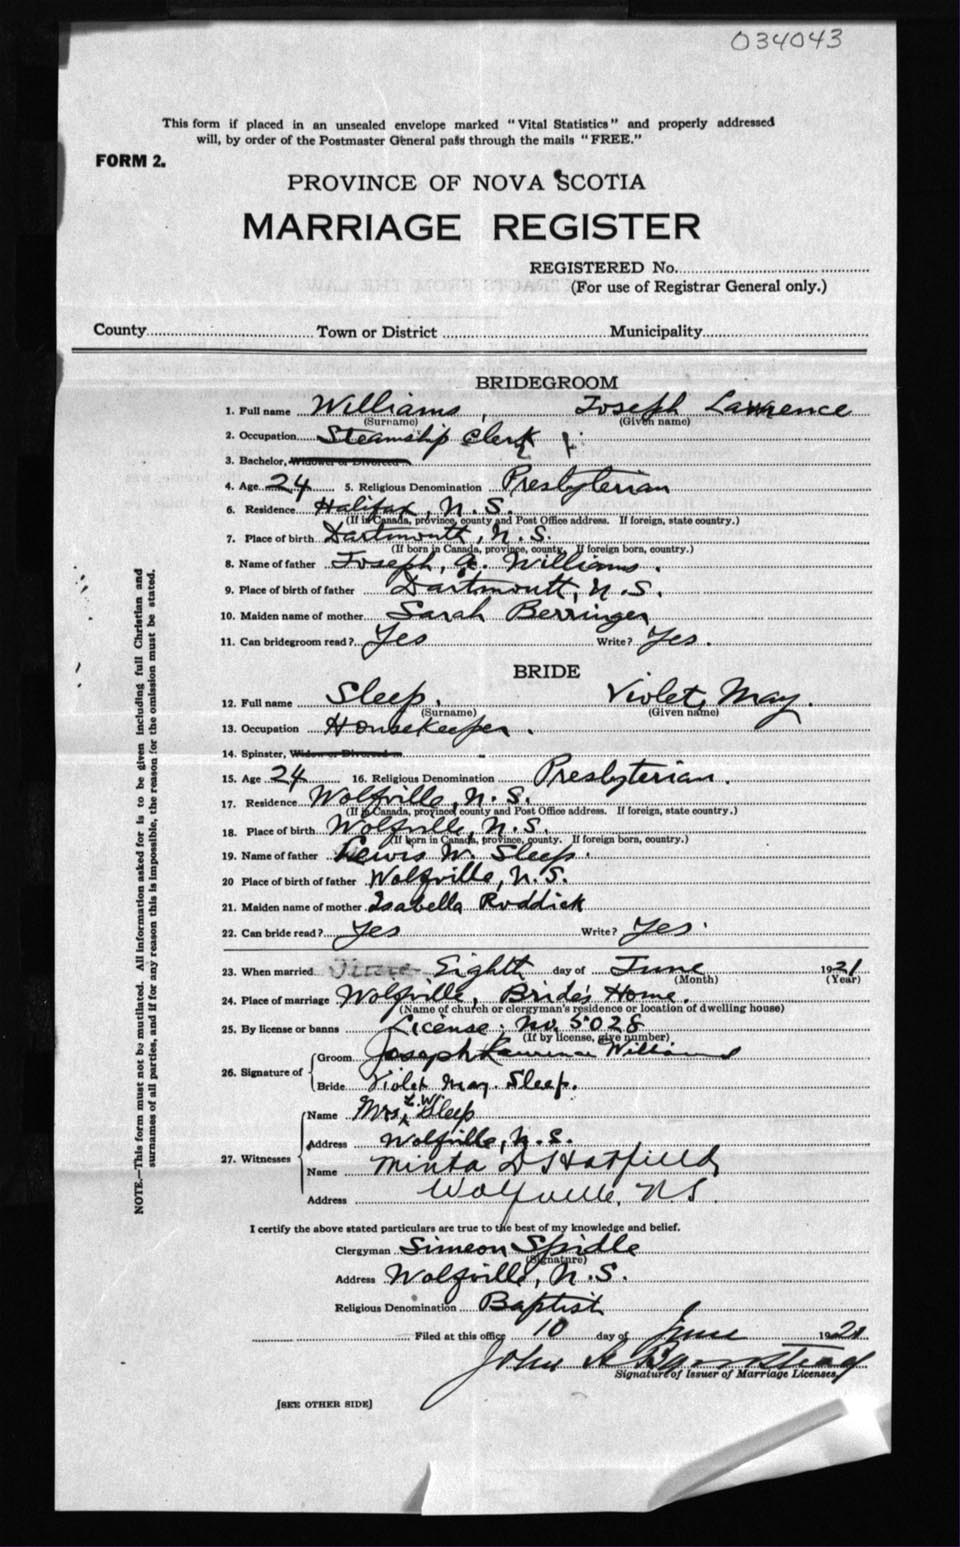 034043
This form if placed in an unsealed envelope marked "Vital Statistics" and properly addressed
will, by order of the Postmaster General pass through the mails "FREE."
FORM 2.
PROVINCE OF NOVA SCOTIA
MARRIAGE REGISTER
REGISTERED No.
(For use of Registrar General only.)
County Town or District Municipality
BRIDEGROOM
1. Full name Williams, Joseph Lawrence
(Surname) (Given name)
2. Occupation Steamship Clerk
3. Bachelor, Widower or Divorced
4. Age 24 5. Religious Denomination Presbyterian
6. Residence Halifax, N.S.
(If in Canada, province, county and Post Office address. If foreign, state country.)
7. Place of birth Dartmouth, N.S.
(If born in Canada, province, county. If foreign born, country.)
8. Name of father Joseph, A. Williams.
9. Place of birth of father Dartmouth, N.S.
10. Maiden name of mother Sarah Berringer
11. Can bridegroom read? Yes Write? Yes.
BRIDE
12. Full name Sleep, Violet, May.
(Surname) (Given name)
13. Occupation Housekeeper.
14. Spinster, Widow or Divorced
15. Age 24 16. Religious Denomination Presbyterian.
17. Residence Wolfville, N.S.
(If in Canada, province, county and Post Office address. If foreign, state country.)
18. Place of birth Wolfville, N.S.
(If born in Canada, province, county. If foreign born, country.)
19. Name of father Lewis W. Sleep.
20 Place of birth of father Wolfville, N.S.
21. Maiden name of mother Isabella Roddick
22. Can bride read? Yes Write? Yes.
23. When married Eighth day of June 1921
(Month) (Year)
24. Place of marriage Wolfville, Bride's Home.
(Name of church or clergyman's residence or location of dwelling house)
25. By license or banns License. No. 5028
(If by license, give number)
26. Signature of Groom Joseph Lawrence Williams
Bride Violet May Sleep.
27. Witnesses Name Mrs. L.W. Sleep
Address Wolfville, N.S.
Name Minta D Hatfield
Address Wolfville, N.S.
I certify the above stated particulars are true to the best of my knowledge and belief.
Clergyman Simeon Spidle
(Signature)
Address Wolfville, N.S.
Religious Denomination Baptist
Filed at this office 10 day of June 1921
John
Signature of Issuer of Marriage Licenses
[SEE OTHER SIDE]
NOTE.—This form must not be mutilated. All information asked for is to be given including full Christian and
surnames of all parties, and if for any reason this is impossible, the reason for the omission must be stated.